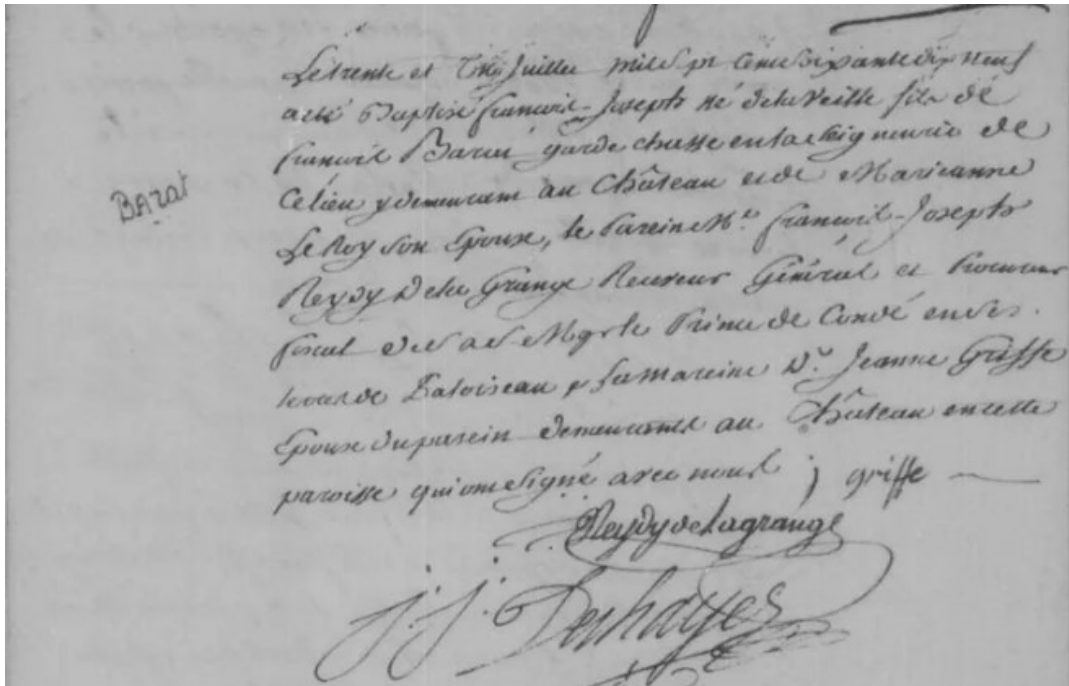 Le trente et un Juillet mil sept cent soixante dix neuf
a eté Baptisé françois-Joseph né de la veille fils de
françois Barat garde chasse en la seigneurie de
Barat
Ce lieu y demeurant au Château et de Marieanne
Le Roy son Epouse, le Parein Mr. françois-Joseph
Reydy De la Grange Receveur Général et Procureur
fiscal de S A S Mgr le Prince de Condé en ses
terres de Paloiseau, La Mareine De. Jeanne Griffe
Epouse du parein demeurants au Château en cette
paroisse qui ont signé avec nous ; griffe
Reydy de Lagrange
J. J. Deshayes